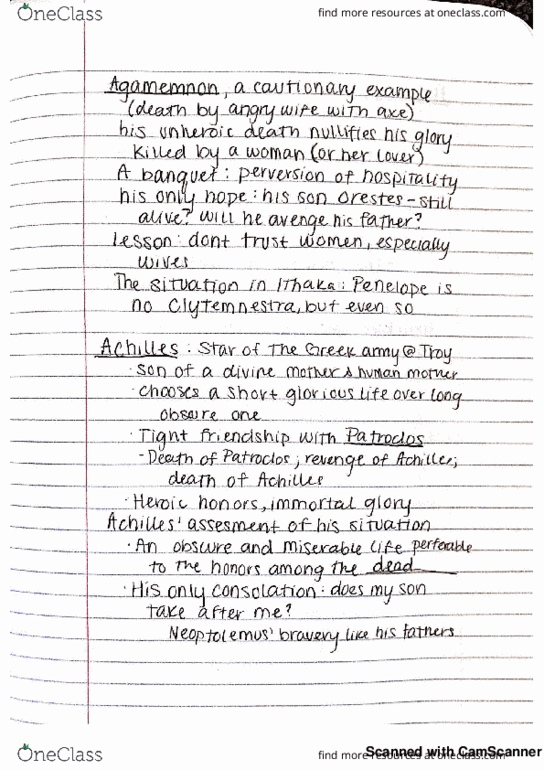 OneClass
find more resources at oneclass.com
Agamemnon, a cautionary example
(death by angry wife with axe)
his unheroic death nullifies his glory
killed by a woman (or her lover)
A banquet: perversion of hospitality
his only hope: his son Orestes - still
alive? Will he avenge his father?
lesson: dont trust women, especially
wives
The situation in Ithaka: Penelope is
no Clytemnestra, but even so
Achilles: Star of The Greek army @ Troy
son of a divine mother & human mother
· chooses a short glorious life over long
obsure one
· Tight friendship with Patroclos
- Death of Patroclos; revenge of Achilles;
death of Achilles
· Heroic honors, immortal glory
Achilles' assesment of his situation
· An obscure and miserable life perferable
to the honors among the dead
· His only consolation: does my son
take after me?
Neoptolemus' bravery like his fathers
OneClass
find more resources at oneclass.com
Scanned with CamScanner